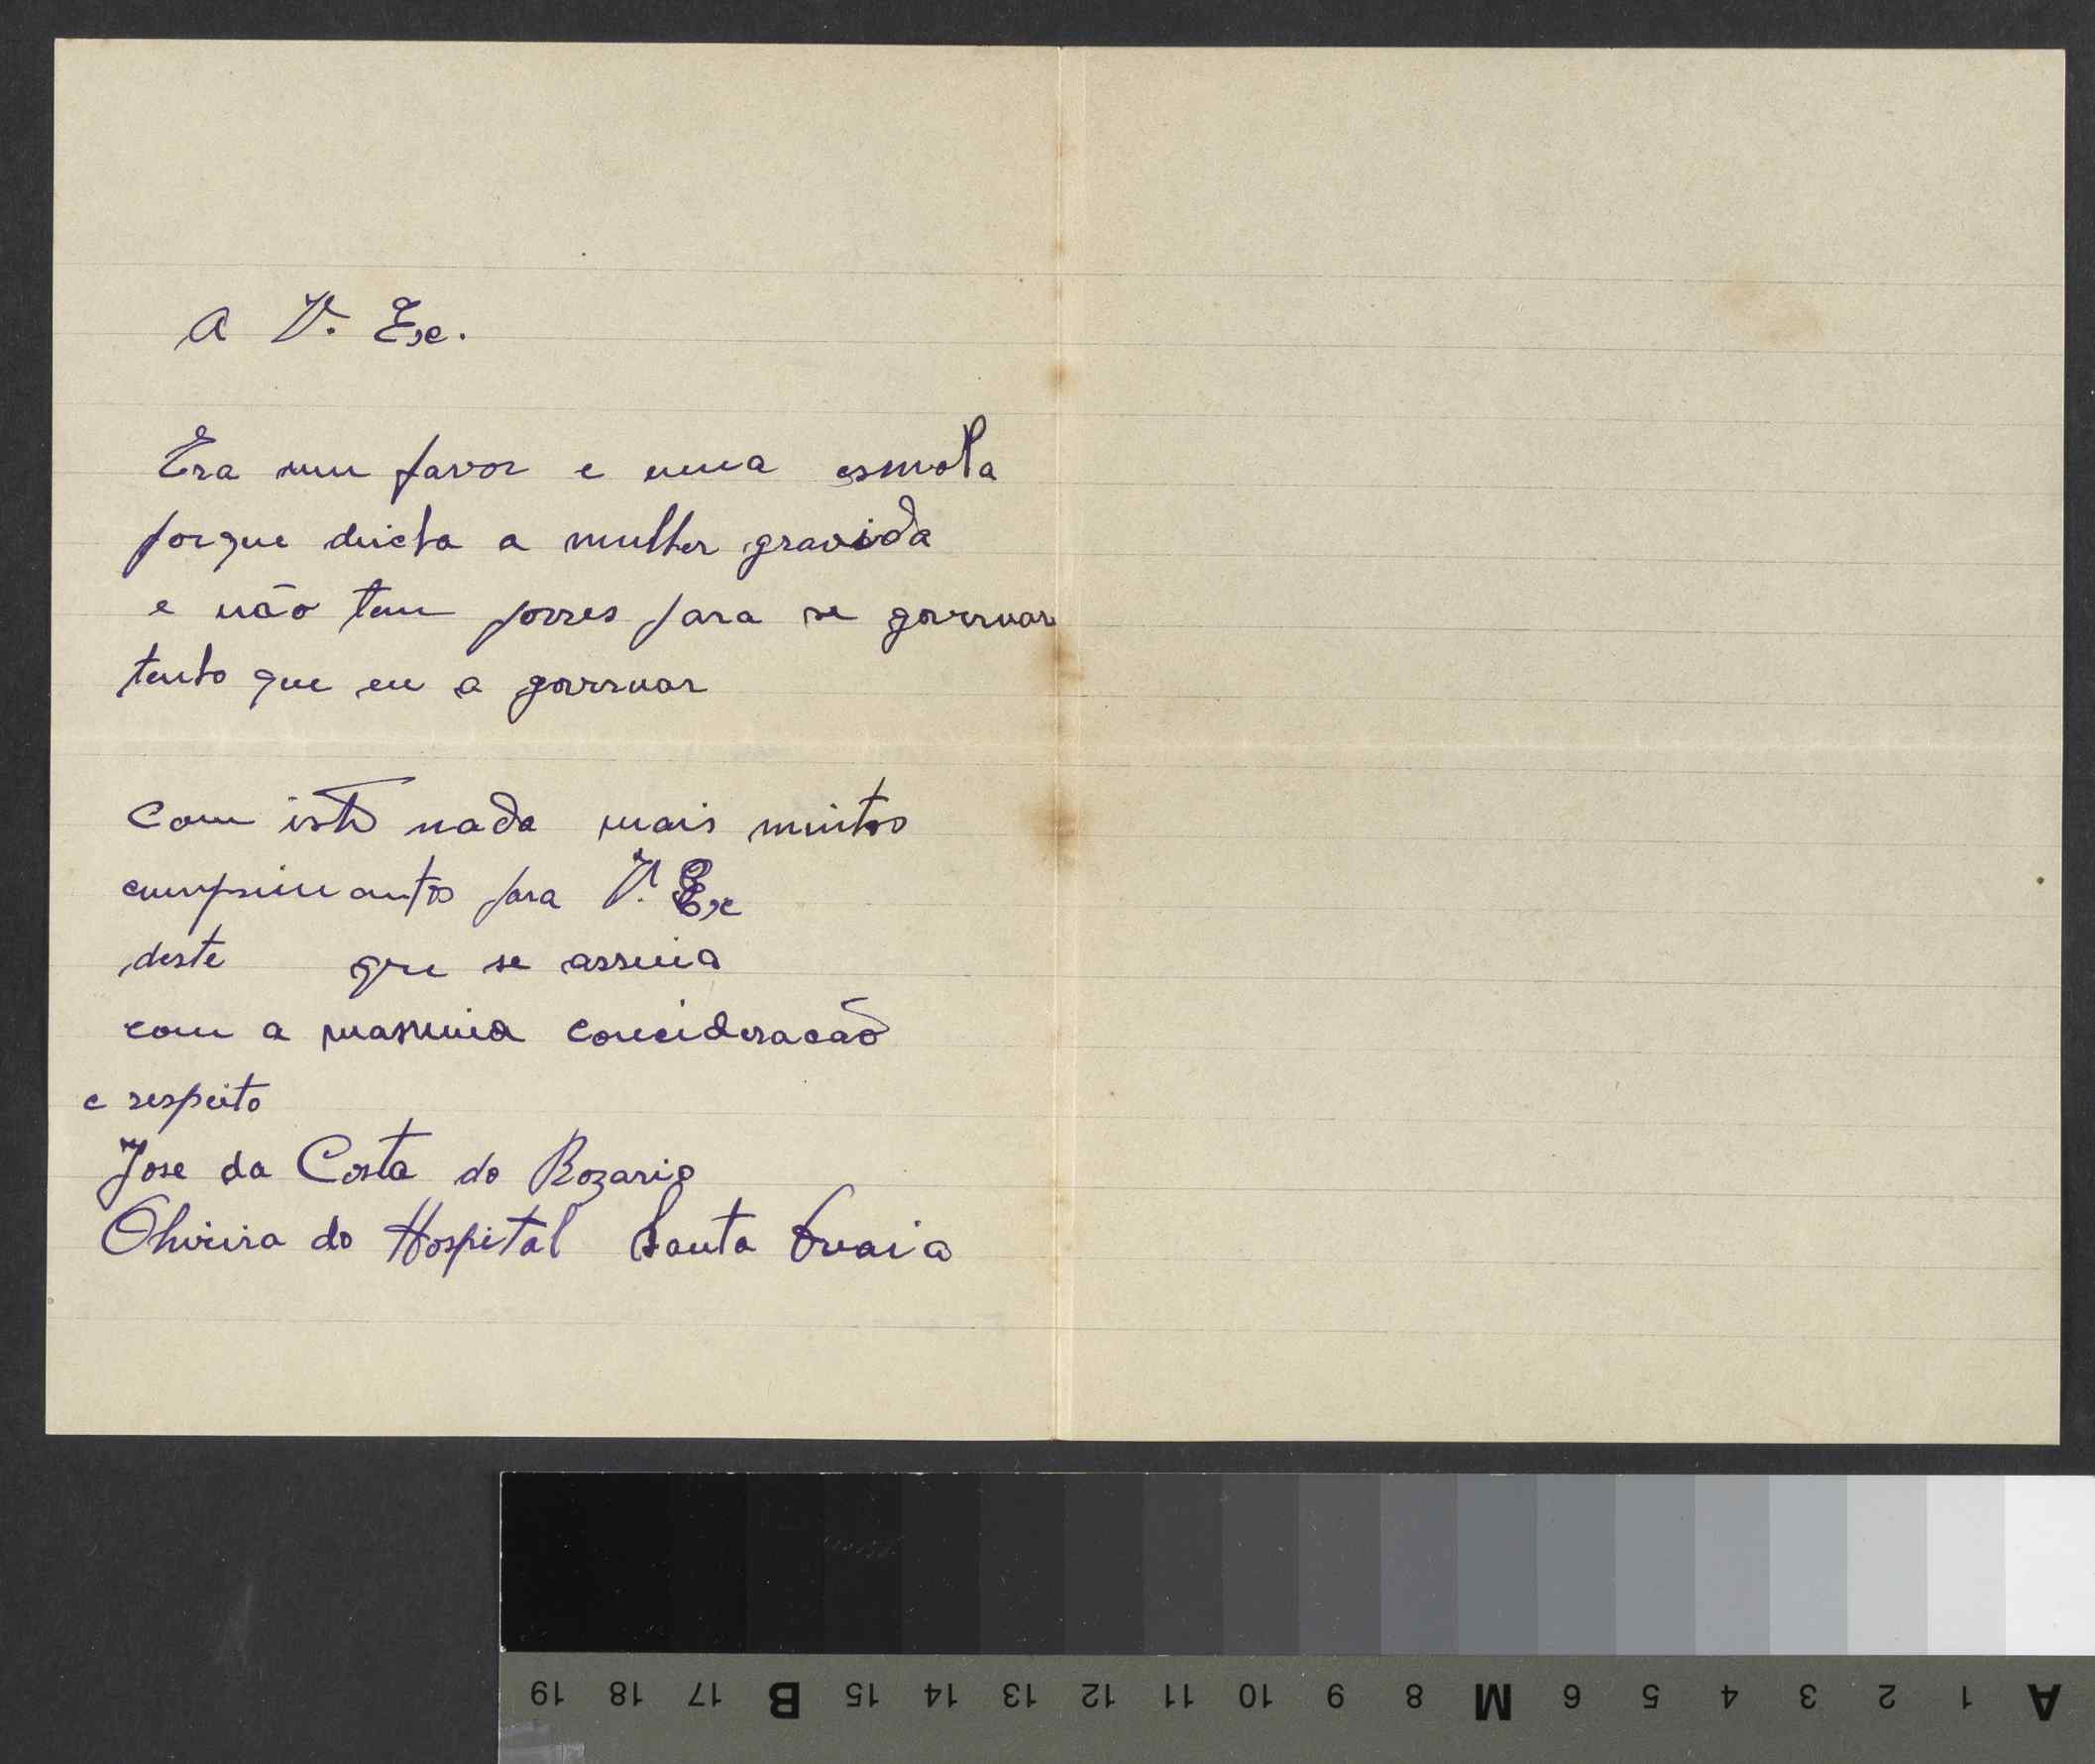 A V. Exc.
Era um favor e uma esmola
porque deicha a mulher gravida
e não tem posses para se governar
tenho que eu a governar
Com isto nada mais muitos
cumprimantos para V. Exc
deste que se assina
com a masima concideracão
e respeito
Jose da Costa do Rozario
Oliveira do Hospital Santa Ovaia
19 18 17 B 15 14 13 12 11 10 9 8 M 6 5 4 3 2 1 A